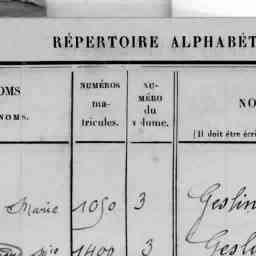 RÉPERTOIRE ALPHABÉT
OMS
NOMS.
NUMÉROS
ma-
tricules.
NU-
MÉRO
du
volume.
NO
(Il doit être écri
Marie 1050 3 Geslin
1400 3 Gesli